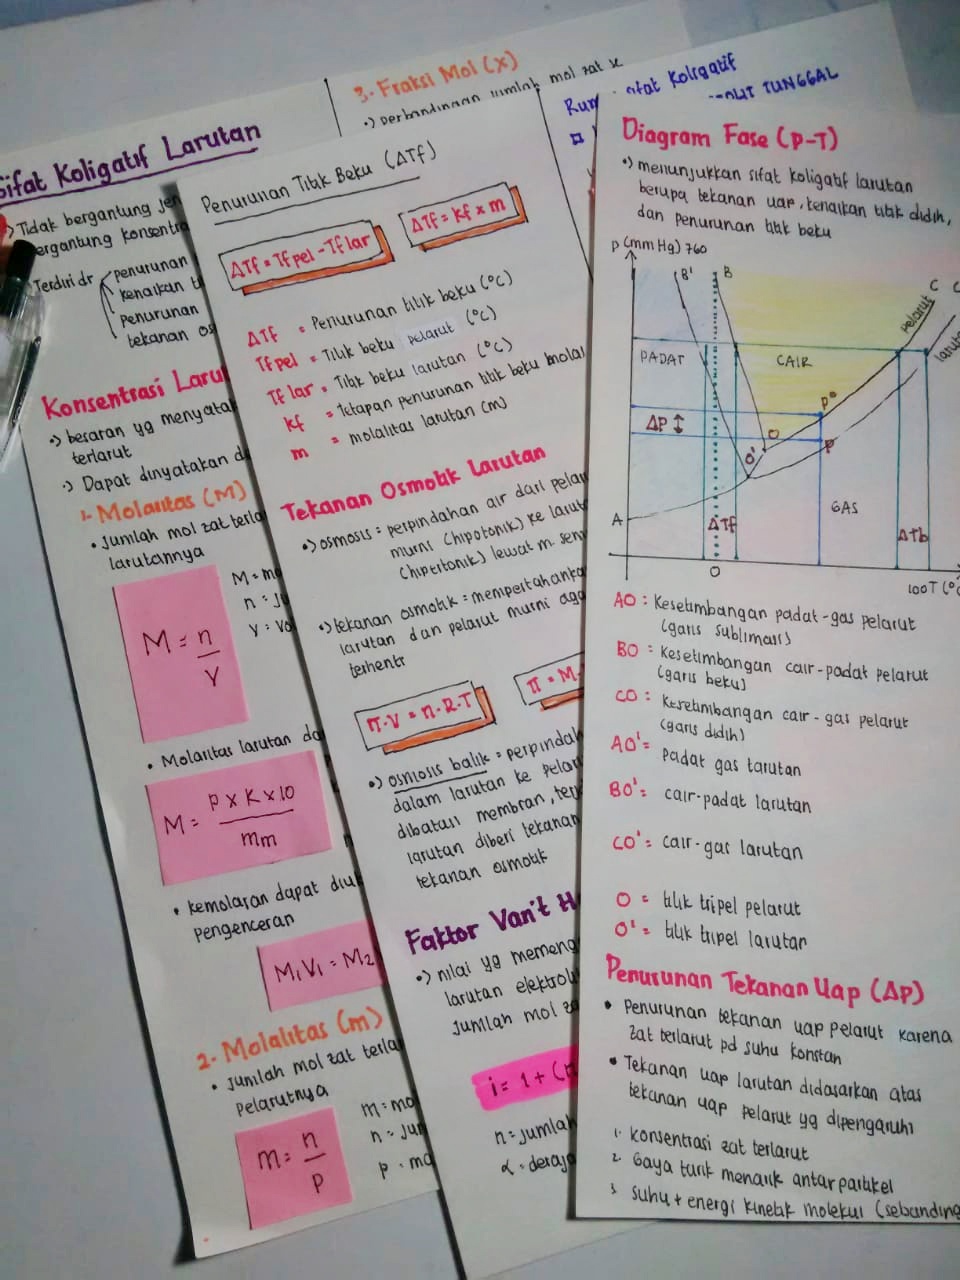 Sifat Koligatif Larutan
Tidak bergantung
bergantung
Terdiri dr
penurunan
kenaikan
penurunan
tekanan
Konsentrasi
•) besaran yg
terlarut
•) Dapat dinyatakan
1. Molaritas (M)
• Jumlah mol zat
larutannya
M = n
V
M =
n =
V =
• Molaritas larutan
M = p x K x 10
mm
• kemolaran dapat
pengenceran
M₁V₁ = M₂
2. Molalitas (m)
• Jumlah mol zat
pelarutnya
m = n
p
m =
n =
p =
3. Fraksi Mol (x)
•) perbandingan jumlah mol zat
Koligatif
TUNGGAL
Penurunan Titik Beku (ΔTf)
ΔTf = Tf pel - Tf lar
ΔTf = Kf x m
ΔTf = Penurunan titik beku (°C)
Tf pel = Titik beku pelarut (°C)
Tf lar = Titik beku larutan (°C)
kf = Tetapan penurunan titik beku
m = molalitas larutan (m)
Tekanan Osmotik Larutan
•) osmosis = perpindahan air dari
murni (hipotonik) ke
(hipertonik) lewat m.
•) tekanan osmotik =
larutan dan pelarut murni
terhenti
π.V = n.R.T
π = M.
•) osmosis balik =
dalam larutan ke
dibatasi membran,
larutan diberi tekanan
tekanan osmotik
Faktor Van't
•) nilai yg
larutan
jumlah mol
i = 1 + (n
n = jumlah
α =
Diagram Fase (P-T)
•) menunjukkan sifat koligatif larutan
berupa tekanan uap, kenaikan titik didih,
dan penurunan titik beku
P (mm Hg) 760
B' B C
pelarut
PADAT CAIR
P°
ΔP
O
O' P
GAS
A
ΔTf ΔTb
O 100 T
AO : Kesetimbangan padat-gas pelarut
(garis sublimasi)
BO : Kesetimbangan cair-padat pelarut
(garis beku)
CO : Kesetimbangan cair-gas pelarut
(garis didih)
AO' = padat gas larutan
BO' = cair-padat larutan
CO' = cair-gas larutan
O = titik tripel pelarut
O' = titik tripel larutan
Penurunan Tekanan Uap (ΔP)
• Penurunan tekanan uap pelarut karena
zat terlarut pd suhu konstan
• Tekanan uap larutan didasarkan atas
tekanan uap pelarut yg dipengaruhi
1. konsentrasi zat terlarut
2. Gaya tarik menarik antar partikel
3. suhu + energi kinetik molekul (sebanding